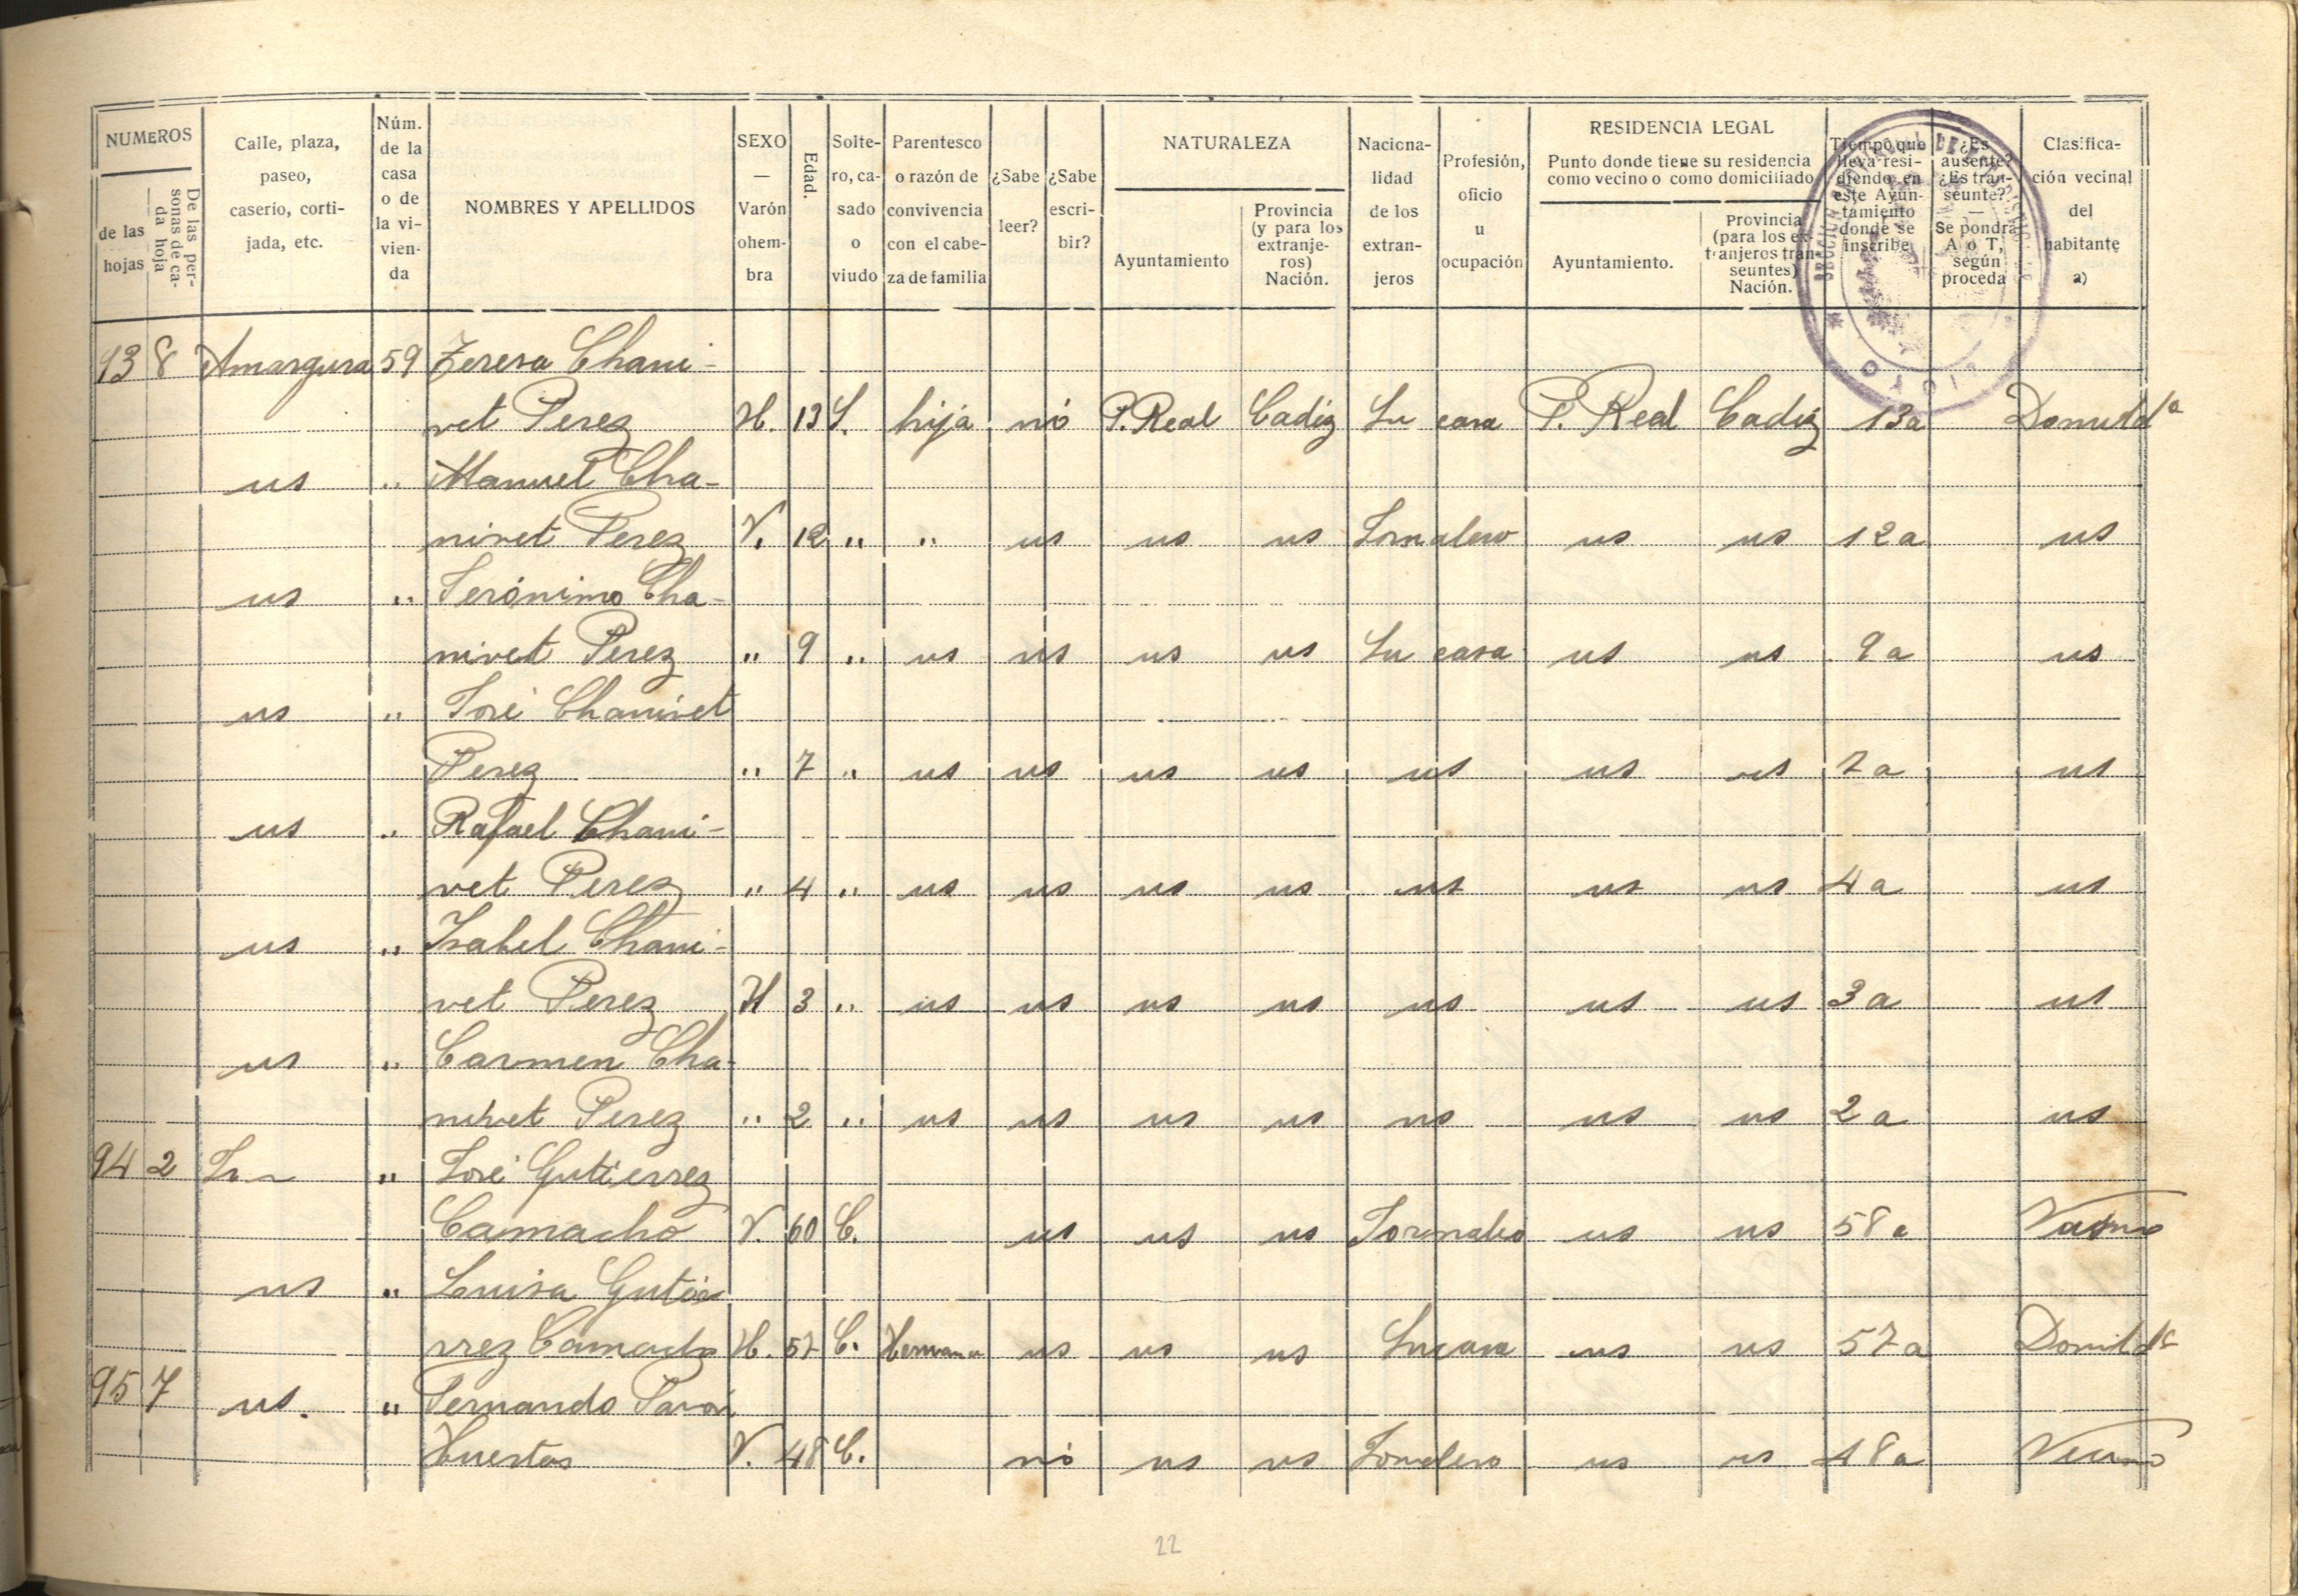 NUMEROS
de las hojas
De las personas de cada hoja
Calle, plaza, paseo, caserío, cortijada, etc.
Núm. de la casa o de la vivienda
NOMBRES Y APELLIDOS
SEXO — Varón o hembra
Edad.
Soltero, casado o viudo
Parentesco o razón de convivencia con el cabeza de familia
¿Sabe leer?
¿Sabe escribir?
NATURALEZA
Ayuntamiento
Provincia (y para los extranjeros) Nación.
Nacionalidad de los extranjeros
Profesión, oficio u ocupación
RESIDENCIA LEGAL
Punto donde tiene su residencia como vecino o como domiciliado
Ayuntamiento.
Provincia (para los extranjeros transeuntes) Nación.
Tiempo que lleva residiendo en este Ayuntamiento donde se inscribe
¿Es ausente? ¿Es transeunte? — Se pondrá A o T, según proceda
Clasificación vecinal del habitante a)
93 8 Amargura 59 Teresa Chani-
vet Perez H. 13 S. hija nó P. Real Cadiz Su casa P. Real Cadiz 13a Domicilda
us " Manuel Cha-
nivet Perez V. 12 " " us us us Jornalero us us 12a us
us " Jerónimo Cha-
nivet Perez " 9 " us us us us Su casa us us 9a us
us " José Chanivet
Perez " 7 " us us us us us us us 7a us
us " Rafael Chani-
vet Perez " 4 " us us us us us us us 4a us
us " Isabel Chani-
vet Perez H 3 " us us us us us us us 3a us
us " Carmen Cha-
nivet Perez " 2 " us us us us us us us 2a us
94 2 " José Gutierrez
Camacho V. 60 C. us us us Jornalero us us 58a Vecino
us " Luisa Gutie
rrez Camacho H. 57 C. Hermana us us us Su casa us us 57a Domicilda
95 7 us. " Fernando Pavon
Huertas V. 48 C. nó us us Jornalero us us 48a Vecino
22